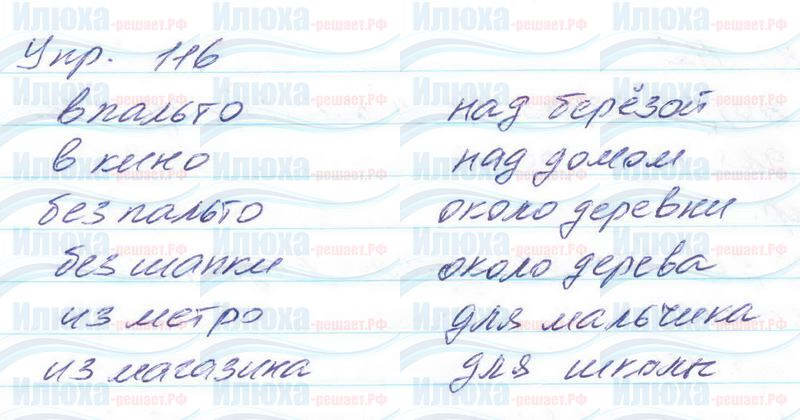 Упр. 116
в пальто
в кино
без пальто
без шапки
из метро
из магазина
над берёзой
над домом
около деревни
около дерева
для мальчика
для школы
Илюха-решает.РФ